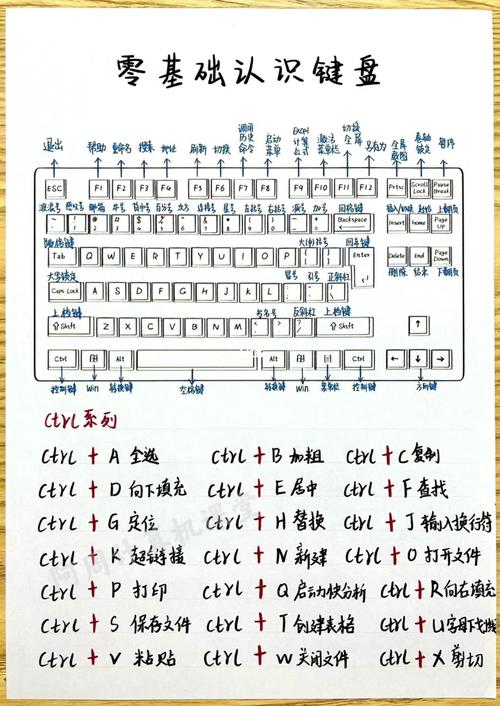 零基础认识键盘
退出 帮助 重命名 搜索 地址 刷新 切换 调用历史命令 启动菜单 EXCEL计算公式 激活菜单栏 切换全屏 另存为 全屏截图 卷轴锁定 暂停
ESC F1 F2 F3 F4 F5 F6 F7 F8 F9 F10 F11 F12 Prtsc Scroll Lock Pause Break
波浪号 感叹号 邮箱 井号 百分号 次方 连接号 星号 左括号 右括号 减号 加号 回格键 插入/改写 上翻页
Backspace Insert Home Page UP
制表键 大(中)括号 回车键
Tab Q W E R T Y U I O P Enter Delete End Page Down
大写锁定 冒号 引号 正斜杠 删除 结束 下翻页
Caps Lock A S D F G H J K L
上档键 书名号 反斜杠 上档键
⇧Shift Z X C V B N M ⇧Shift ↑
Ctrl Alt Alt Ctrl ← ↓ →
控制键 Win 转换键 空格键 转换键 Win 菜单栏 控制键 方向键
Ctrl系列
Ctrl + A 全选 Ctrl + B 加粗 Ctrl + C 复制
Ctrl + D 向下填充 Ctrl + E 居中 Ctrl + F 查找
Ctrl + G 定位 Ctrl + H 替换 Ctrl + J 输入换行符
Ctrl + K 超链接 Ctrl + N 新建 Ctrl + O 打开文件
Ctrl + P 打印 Ctrl + Q 启动快分析 Ctrl + R 向右填充
Ctrl + S 保存文件 Ctrl + T 创建表格 Ctrl + U 字母下划线
Ctrl + V 粘贴 Ctrl + W 关闭文件 Ctrl + X 剪切